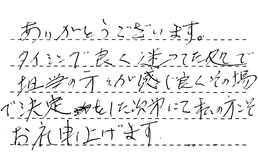 ありがとうございます。
タイミング良く迷ってた処で
担当の方々が感じ良くその場
で決定をした次第にて私の方こそ
お礼申し上げます